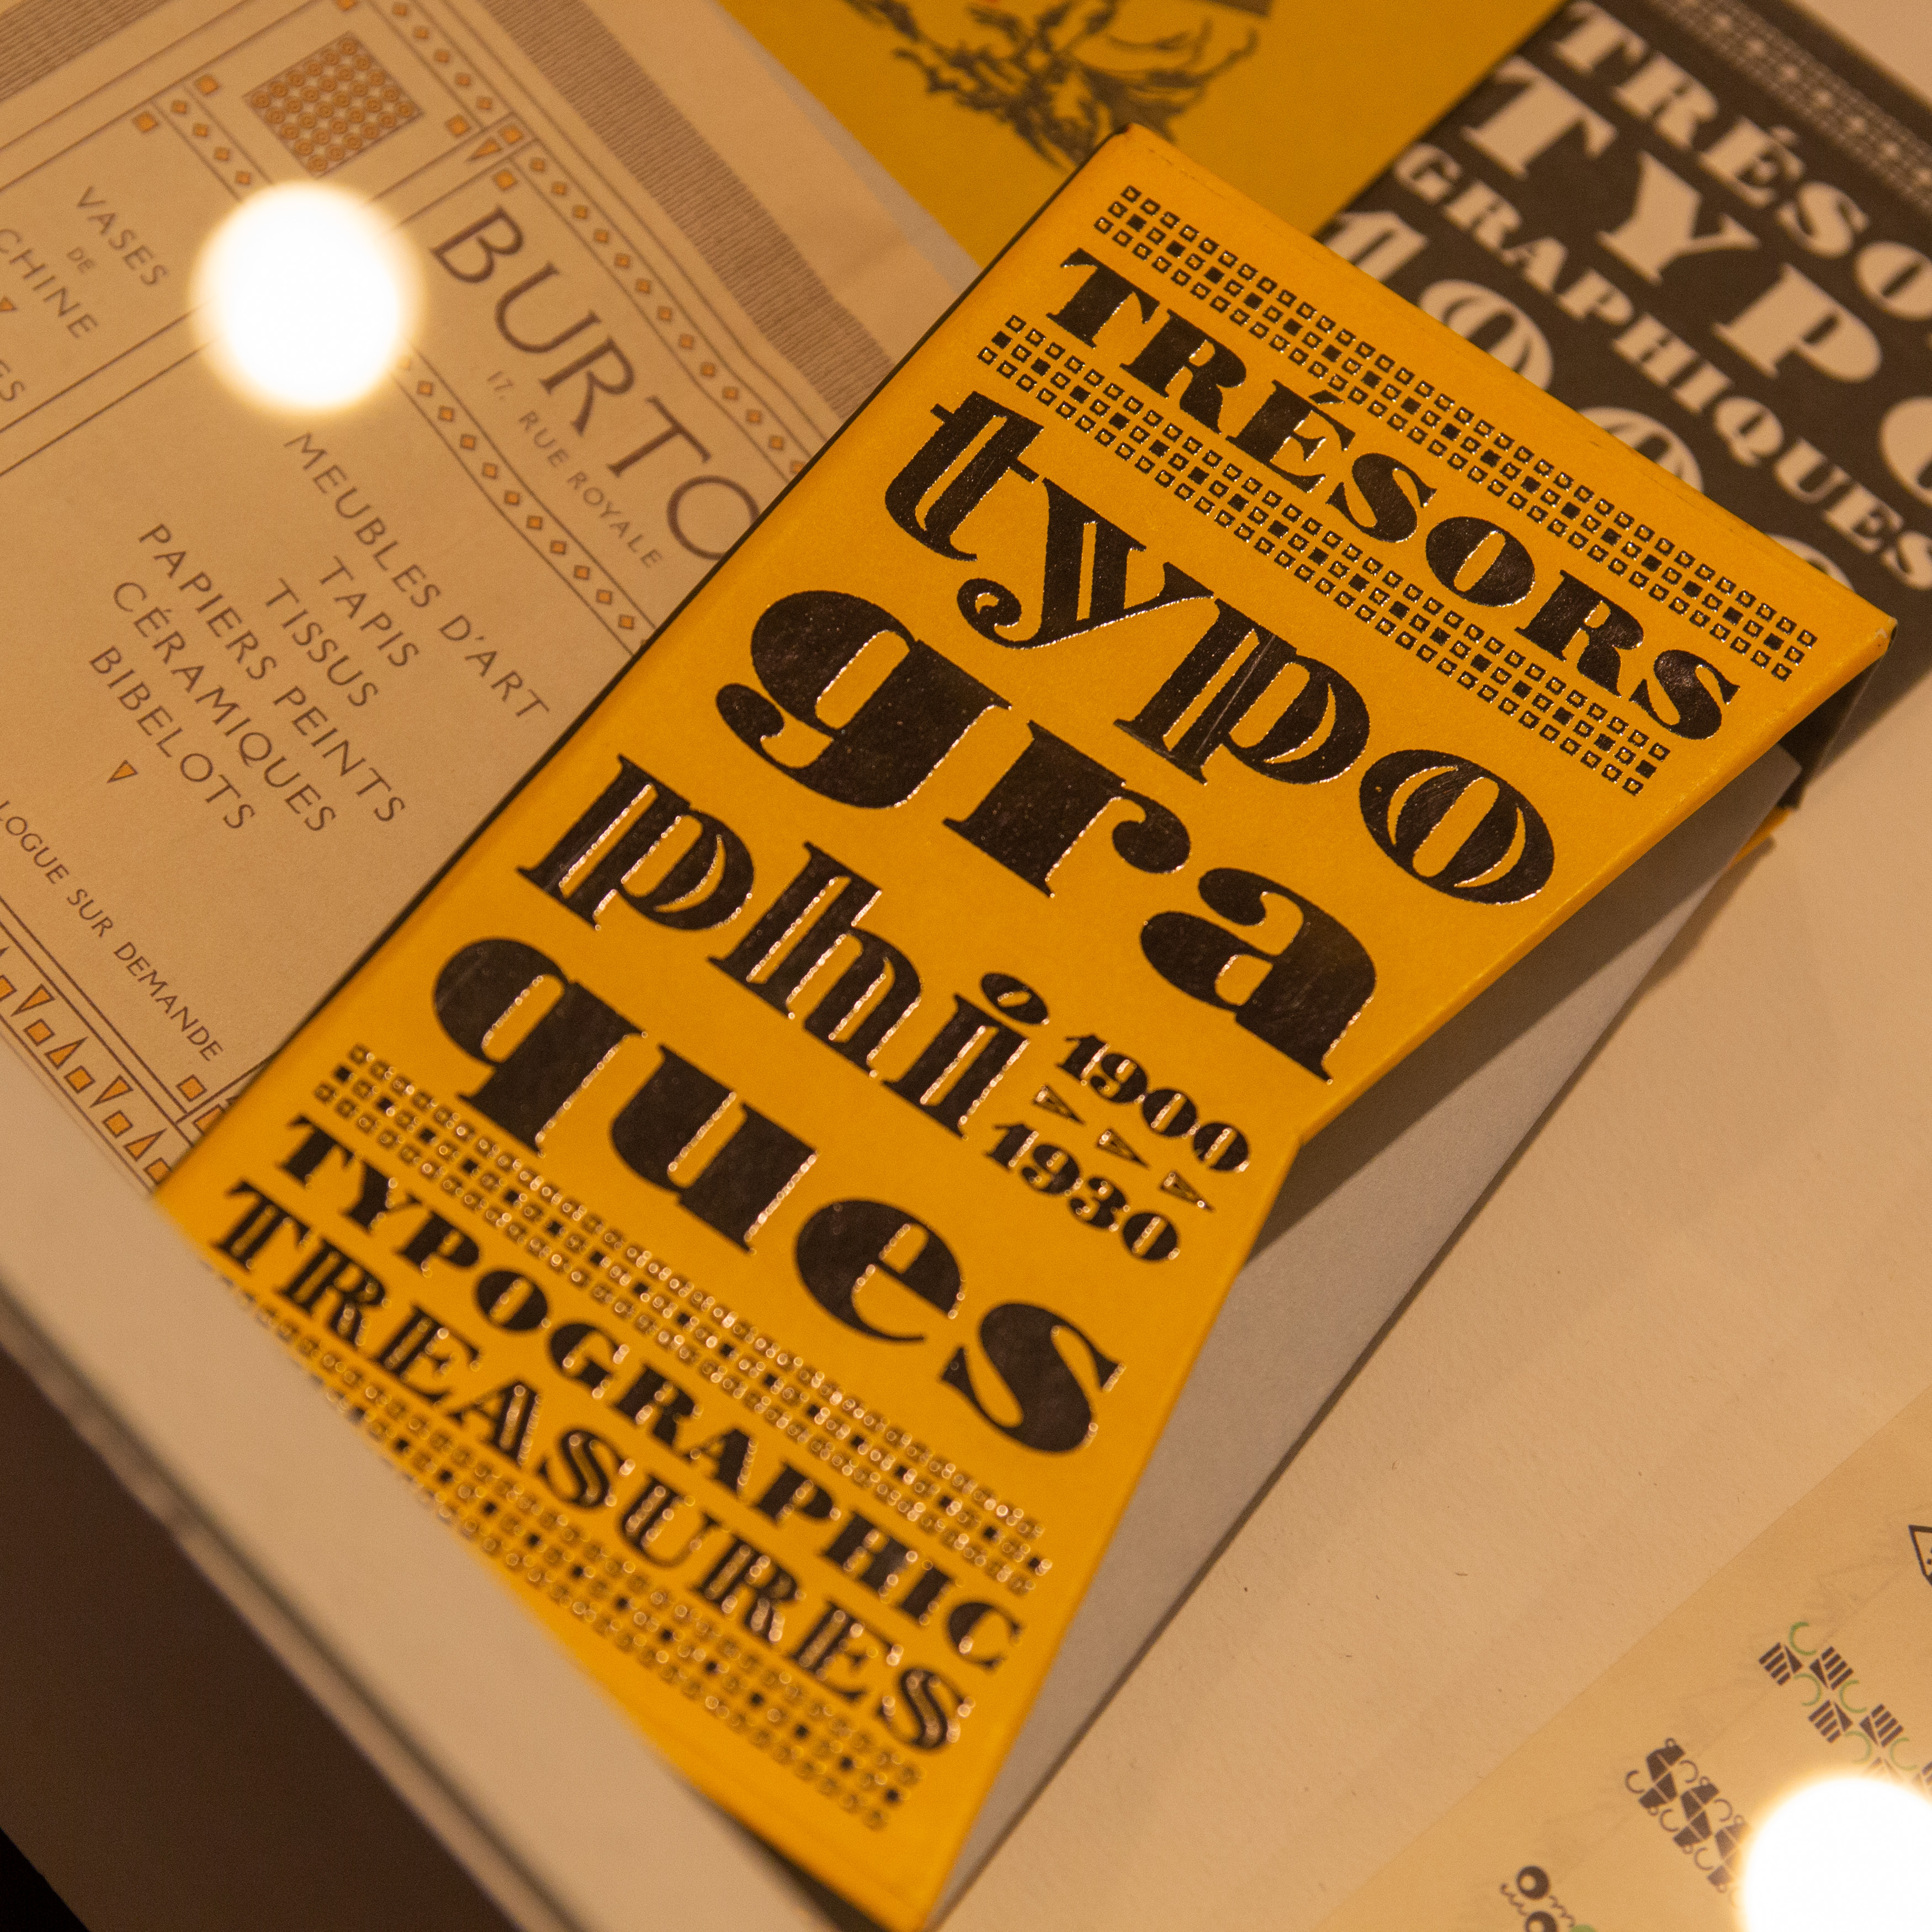 VASES
DE
CHINE
BURTO
17, RUE ROYALE
MEUBLES D'ART
TAPIS
TISSUS
PAPIERS PEINTS
CÉRAMIQUES
BIBELOTS
LOGUE SUR DEMANDE
TRÉSORS
typo
gra
phi
1900
1930
ques
TYPOGRAPHIC
TREASURES
TRÉSO
TYPO
GRAPHIQUES